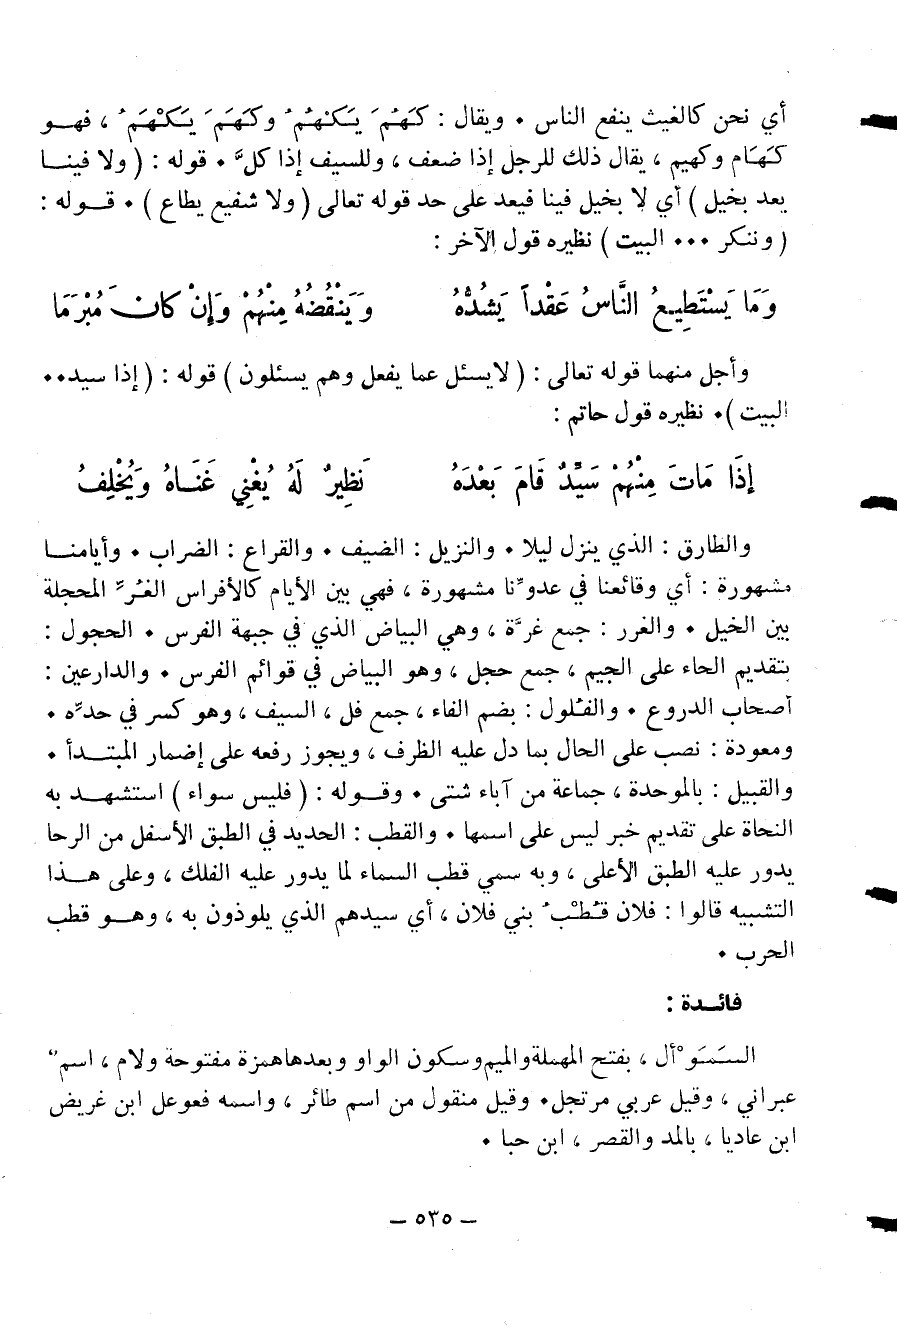 أي نحن كالغيث ينفع الناس • ويقال : كَهُمَ يَكْهُمُ وكَهَمَ يَكْهَمُ ، فهــو
كَهَام وكهيم ، يقال ذلك للرجل إذا ضعف ، وللسيف إذا كلّ • قوله : ( ولا فينــا
يعد بخيل ) أي لا بخيل فينا فيعد على حد قوله تعالى ( ولا شفيع يطاع ) • قــوله :
( وننكر ••• البيت ) نظيره قول الآخر :
وَمَا يَسْتَطِيعُ النَّاسُ عَقْداً يَشُدُّهُ وَيَنْقُضُهُ مِنْهُمْ وَإِنْ كَانَ مُبْرَمَا
وأجل منهما قوله تعالى : ( لايسئل عما يفعل وهم يسئلون ) قوله : ( إذا سيد••
البيت )• نظيره قول حاتم :
إِذَا مَاتَ مِنْهُمْ سَيِّدٌ قَامَ بَعْدَهُ نَظِيرٌ لَهُ يُغْنِي غَنَاهُ وَيُخْلِفُ
والطارق : الذي ينزل ليلا • والنزيل : الضيف • والقراع : الضراب • وأيامنــا
مشهورة : أي وقائعنا في عدوّنا مشهورة ، فهي بين الأيام كالأفراس الغُرّ المحجلة
بين الخيل • والغرر : جمع غرّة ، وهي البياض الذي في جبهة الفرس • الحجول :
بتقديم الحاء على الجيم ، جمع حجل ، وهو البياض في قوائم الفرس • والدارعين :
أصحاب الدروع • والفُلول : بضم الفاء ، جمع فل ، السيف ، وهو كسر في حدّه •
ومعودة : نصب على الحال بما دل عليه الظرف ، ويجوز رفعه على إضمار المبتــدأ •
والقبيل : بالموحدة ، جماعة من آباء شتى • وقــوله : ( فليس سواء ) استشهــد به
النحاة على تقديم خبر ليس على اسمها • والقطب : الحديد في الطبق الأسفل من الرحا
يدور عليه الطبق الأعلى ، وبه سمي قطب السماء لما يدور عليه الفلك ، وعلى هــذا
التشبيه قالوا : فلان قُطْبُ بني فلان ، أي سيدهم الذي يلوذون به ، وهــو قطب
الحرب •
فائــدة :
السَّمَوْأل ، بفتح المهملة والميم وسكون الواو وبعدها همزة مفتوحة ولام ، اسمٌ
عبراني ، وقيل عربي مرتجل• وقيل منقول من اسم طائر ، واسمه فعوعل ابن غريض
ابن عاديا ، بالمد والقصر ، ابن حبا •
— ٥٣٥ —